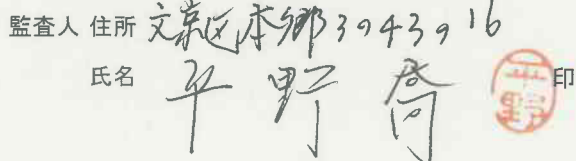 監査人 住所 文京区本郷3の43の16
氏名 平野 喬 平野 印